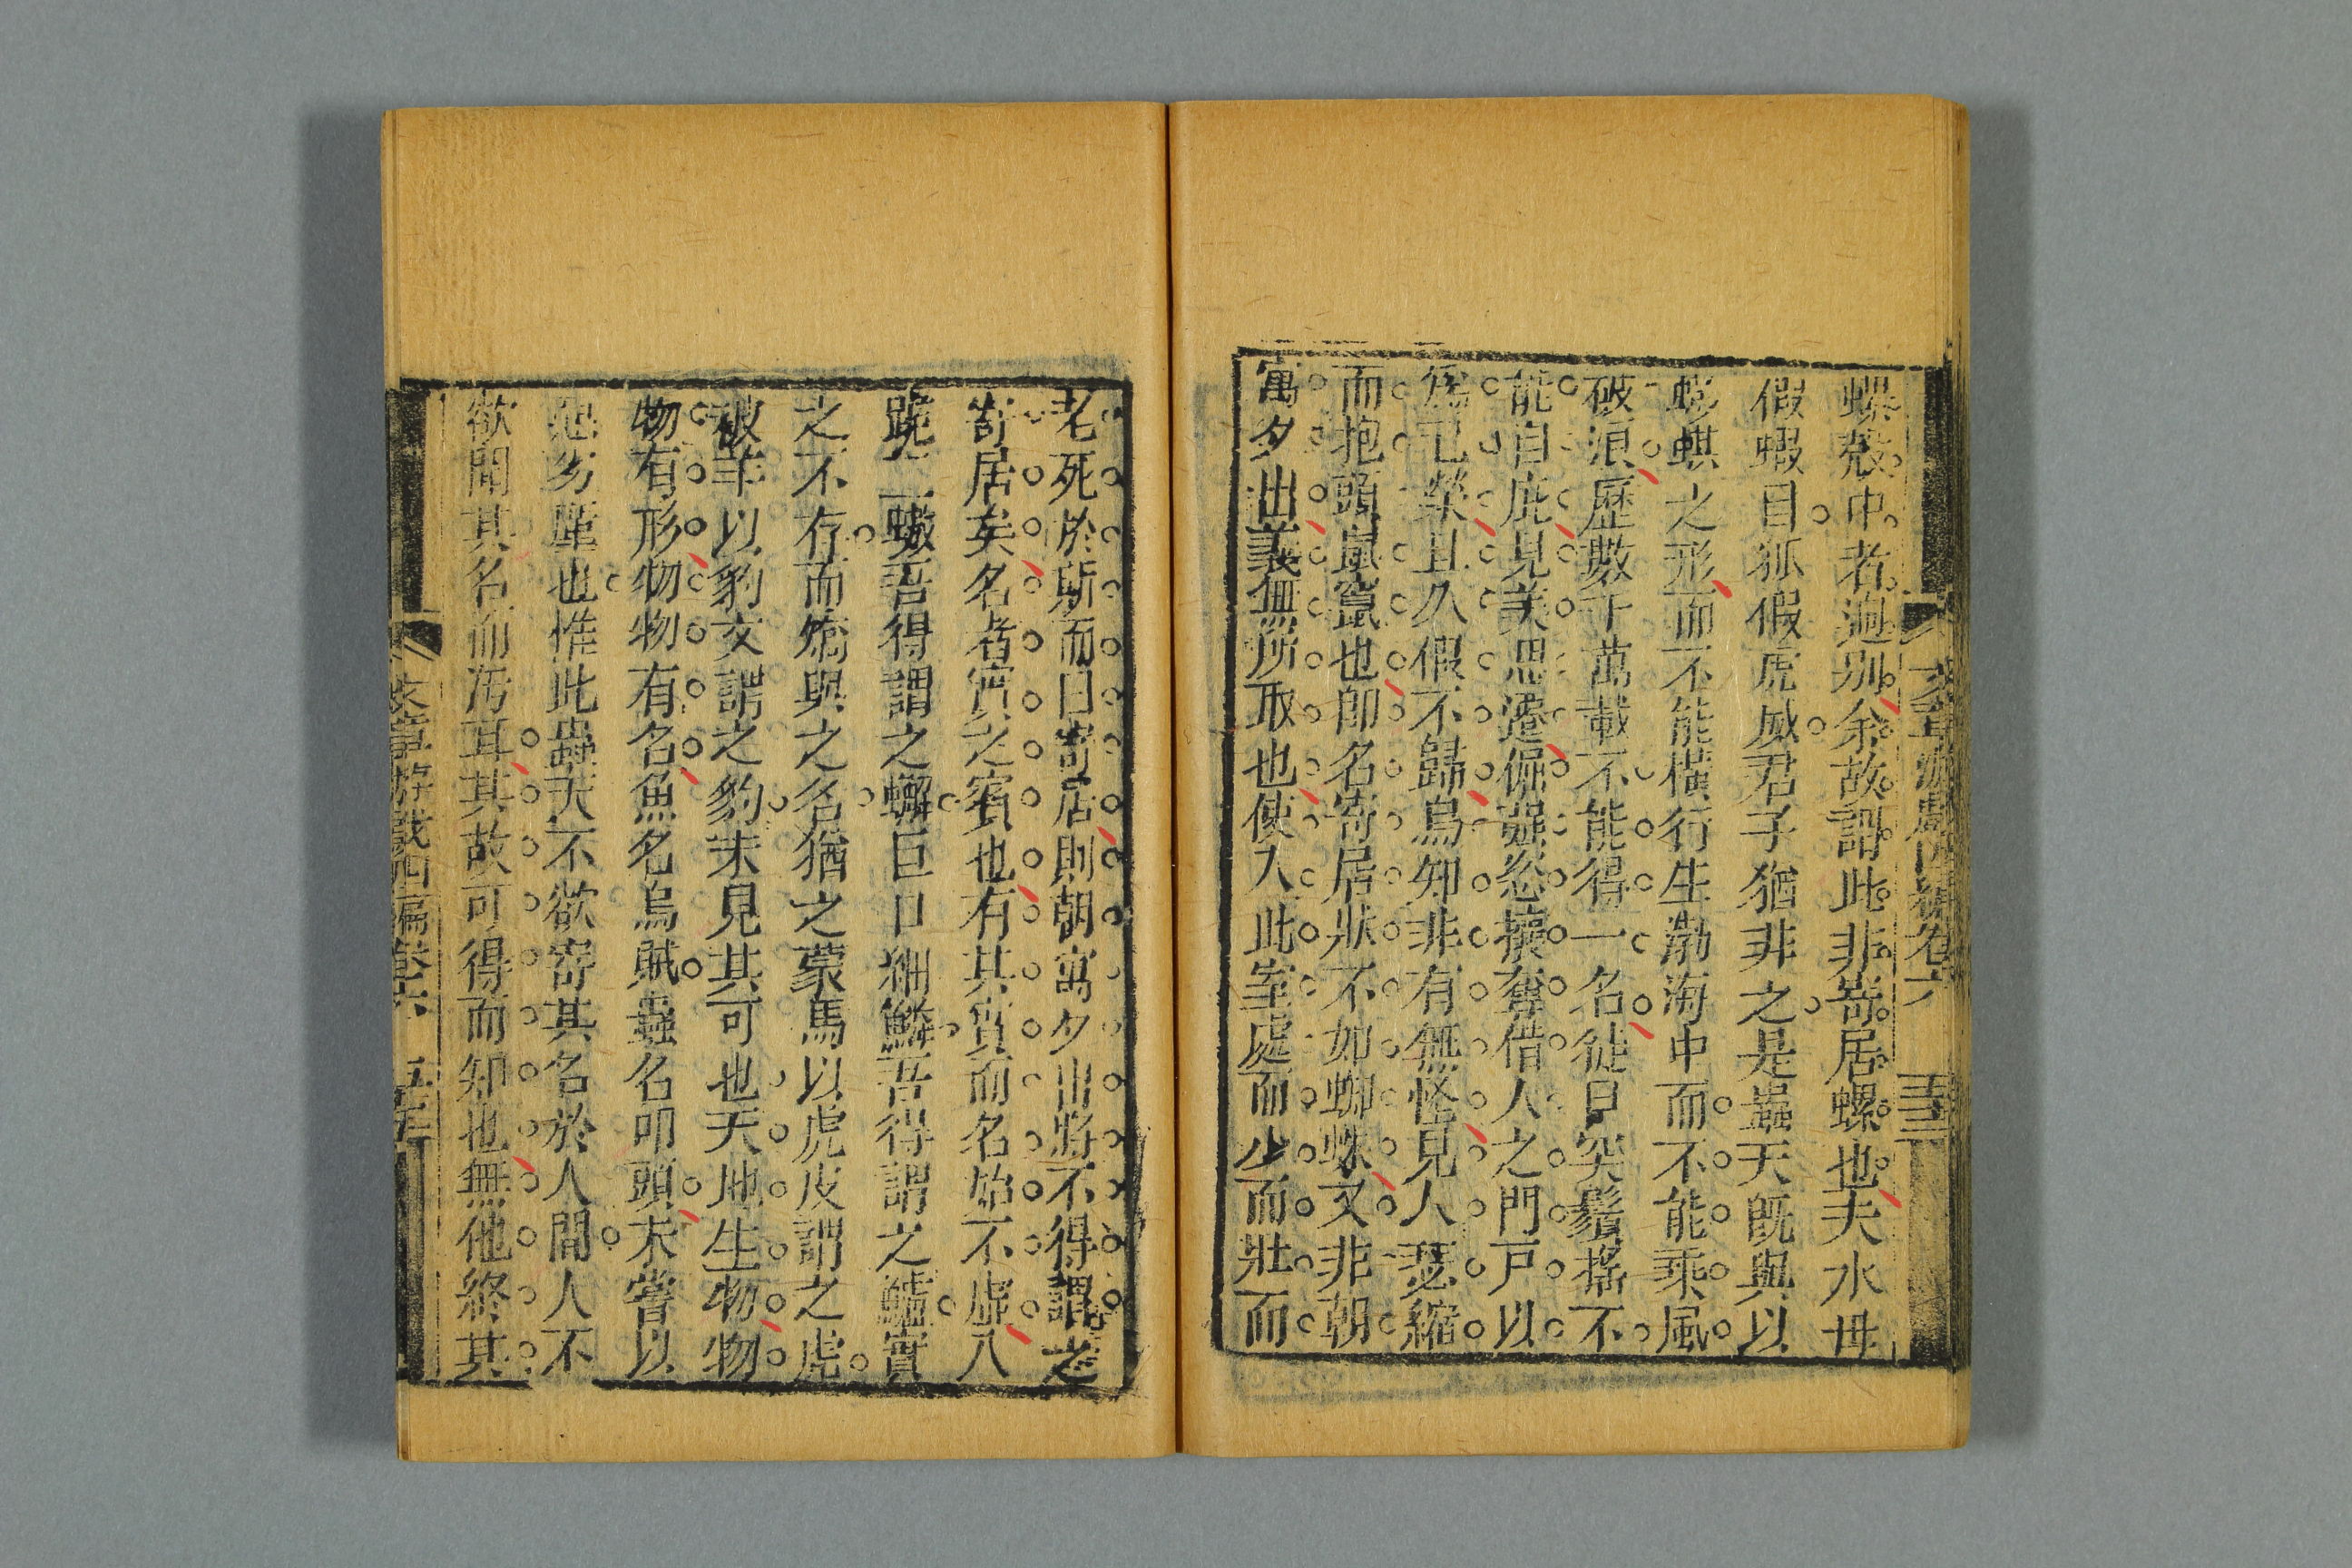 文章游戲四編卷六 五三
螺殼中者迥别余故謂此非寄居螺也夫水母
假蝦目狐假虎威君子猶非之是蟲天旣與以
蟛蜞之形而不能橫行生渤海中而不能乘風
破浪歷數千萬載不能得一名徒曰突鬚搖不
能自庇見美思遷倔强恣攘奪借人之門戸以
爲已榮且久假不歸烏知非有無怪見人瑟縮
而抱頭鼠竄也卽名寄居狀不如蜘蛛又非朝
寓夕出義無所取也使入此室處而少而壯而
老死於斯而曰寄居則朝寓夕出將不得謂之
寄居矣名者實之賓也有其實而名始不虛八
跪二螯吾得謂之蠏巨口細鱗吾得謂之鱸實
之不存而矯與之名猶之蒙馬以虎皮謂之虎
被羊以豹文謂之豹未見其可也天地生物物
物有形物物有名魚名烏賊蟲名叩頭未嘗以
惡歺 也惟此蟲天不欲寄其名於人間人不
欲聞其名而汚耳其故可得而知也無他終其
文章游戲四編卷六 五五